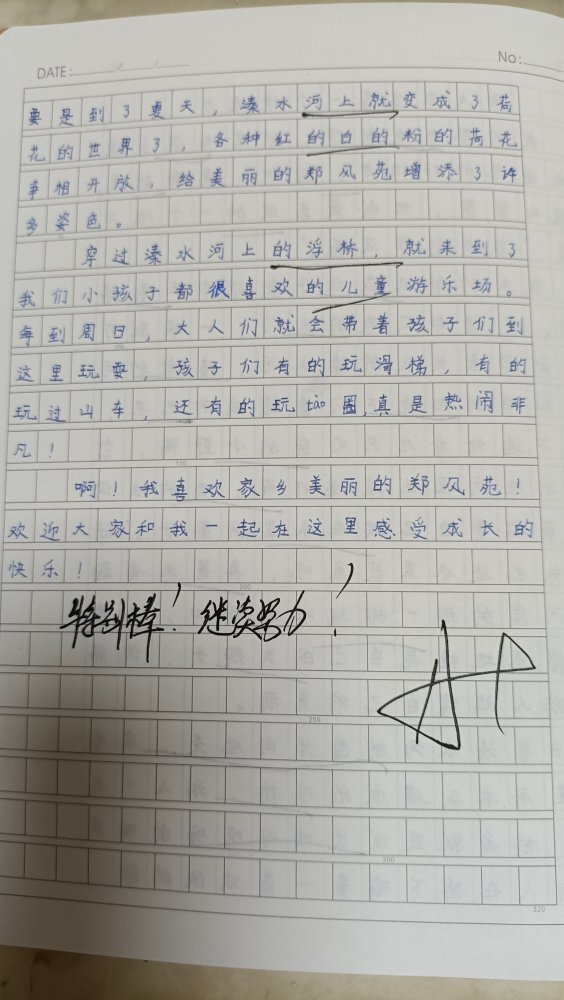 DATE:
No:
要是到了夏天，溱水河上就变成了荷
花的世界了，各种红的白的粉的荷花
争相开放，给美丽的郑风苑增添了许
多姿色。
穿过溱水河上的浮桥，就来到了
我们小孩子都很喜欢的儿童游乐场。
每到周日，大人们就会带着孩子们到
这里玩耍，孩子们有的玩滑梯，有的
玩过山车，还有的玩tào圈，真是热闹非
凡！
啊！我喜欢家乡美丽的郑风苑！
欢迎大家和我一起在这里感受成长的
快乐！
特别棒！继续努力！
100
150
200
250
300
320